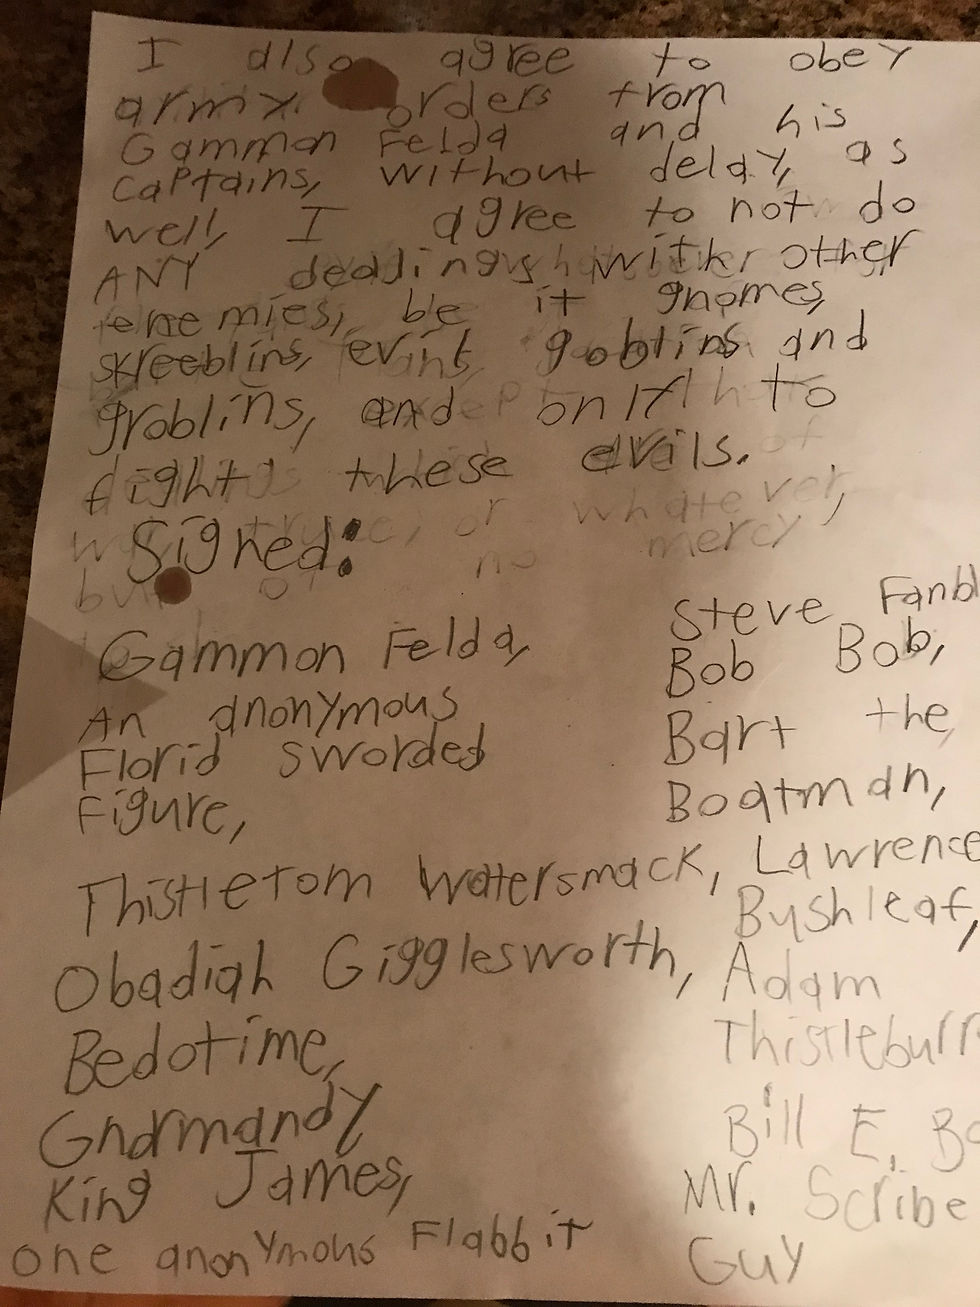 I also agree to obey
army orders from
Gammon Felda and his
captains, without delay, as
well, I agree to not do
ANY dealings with other
enemies, be it gnomes,
skreeblins, evints, goblins and
groblins, and only to
fight these evils.
whatever,
or
mercy
no
Signed:
Gammon Felda,
An anonymous
Florid sworded
Figure,
Thistletom Watersmack,
Obadiah Gigglesworth,
Bedotime,
Gnarmandy
King James,
one anonymous Flabbit
Steve Fanbl
Bob Bob,
Bart the
Boatman,
Lawrence
Bushleaf,
Adam
Thistleburr
Bill E. Bo
Mr. Scribe
Guy